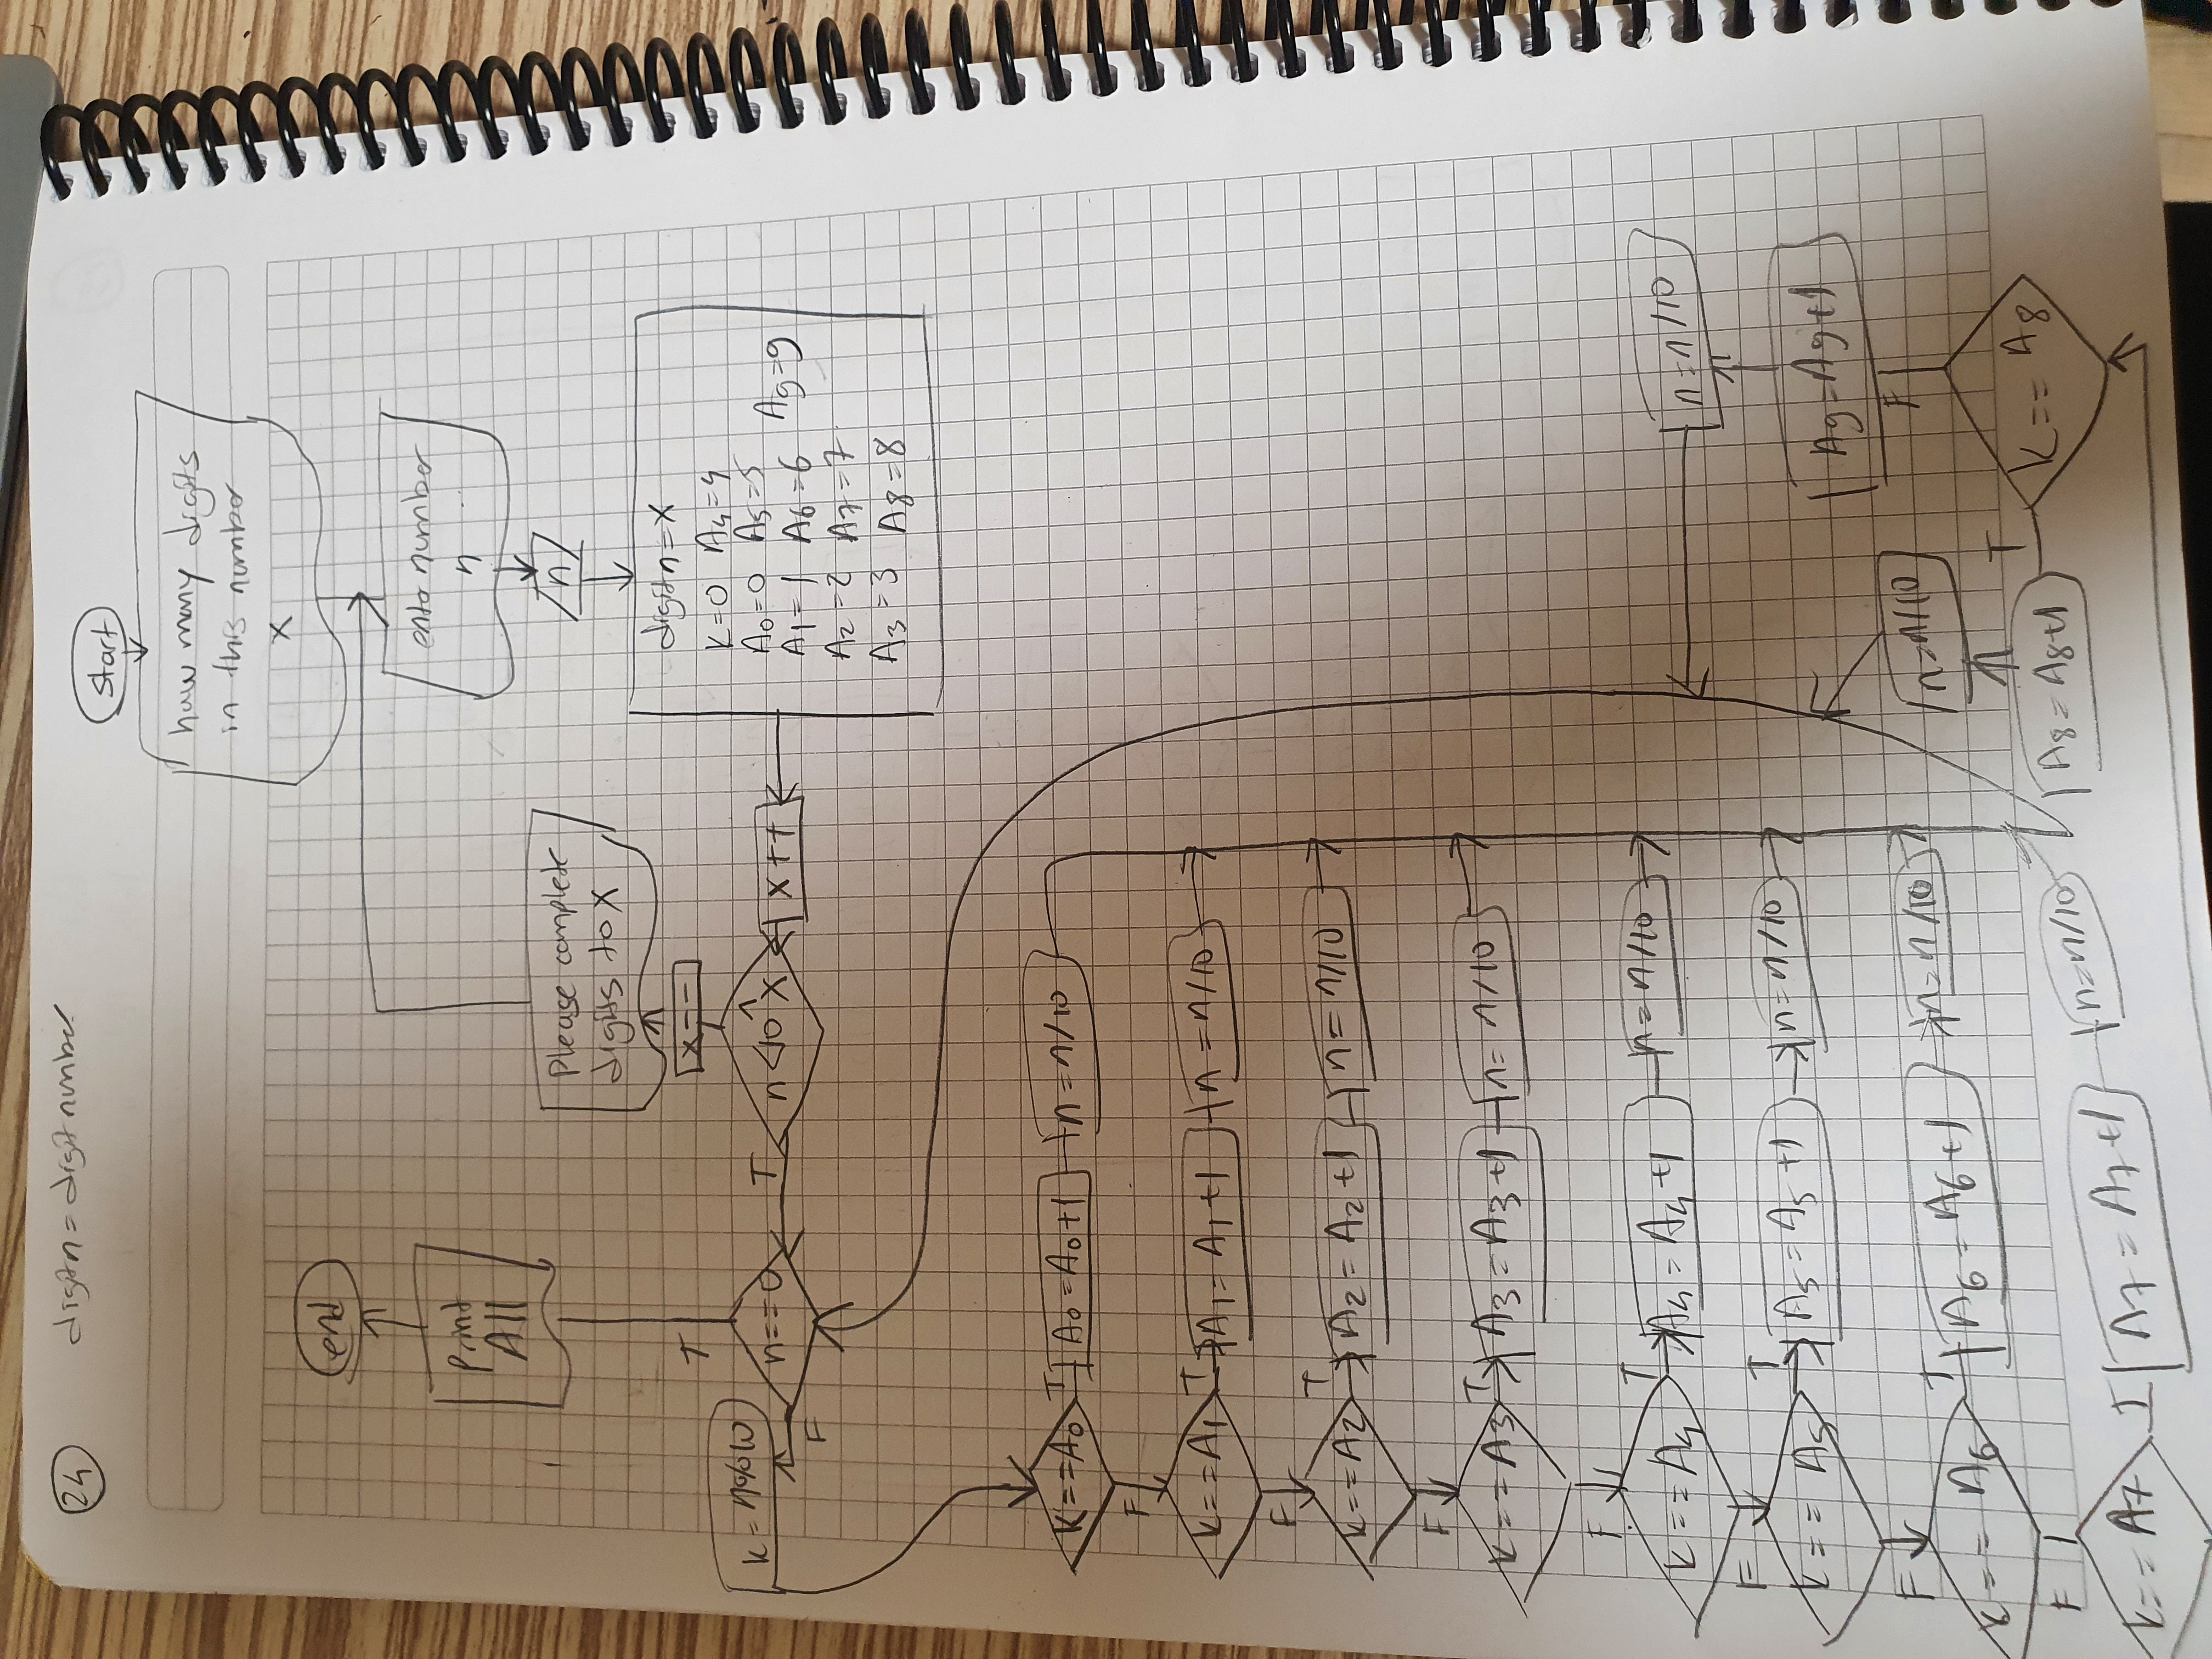 24
digitn = digit number
Start
how many digits
in this number
x
enter number
n
n
digitn = x
K=0 A4=4
A0=0 A5=5
A1=1 A6=6 A9=9
A2=2 A7=7
A3=3 A8=8
x++
n<10^x
x--
Please complete
digits to x
T
n==0
T
print
All
end
F
k = n%10
K==A0 T A0=A0+1 n=n/10
F
k==A1 T A1=A1+1 n=n/10
F
k==A2 T A2=A2+1 n=n/10
F
k==A3 T A3=A3+1 n=n/10
F
k==A4 T A4=A4+1 n=n/10
F
k==A5 T A5=A5+1 n=n/10
F
k==A6 T A6=A6+1 n=n/10
F
k==A7 T A7=A7+1 n=n/10
k==A8 T A8=A8+1 n=n/10
F
A9=A9+1
n=n/10